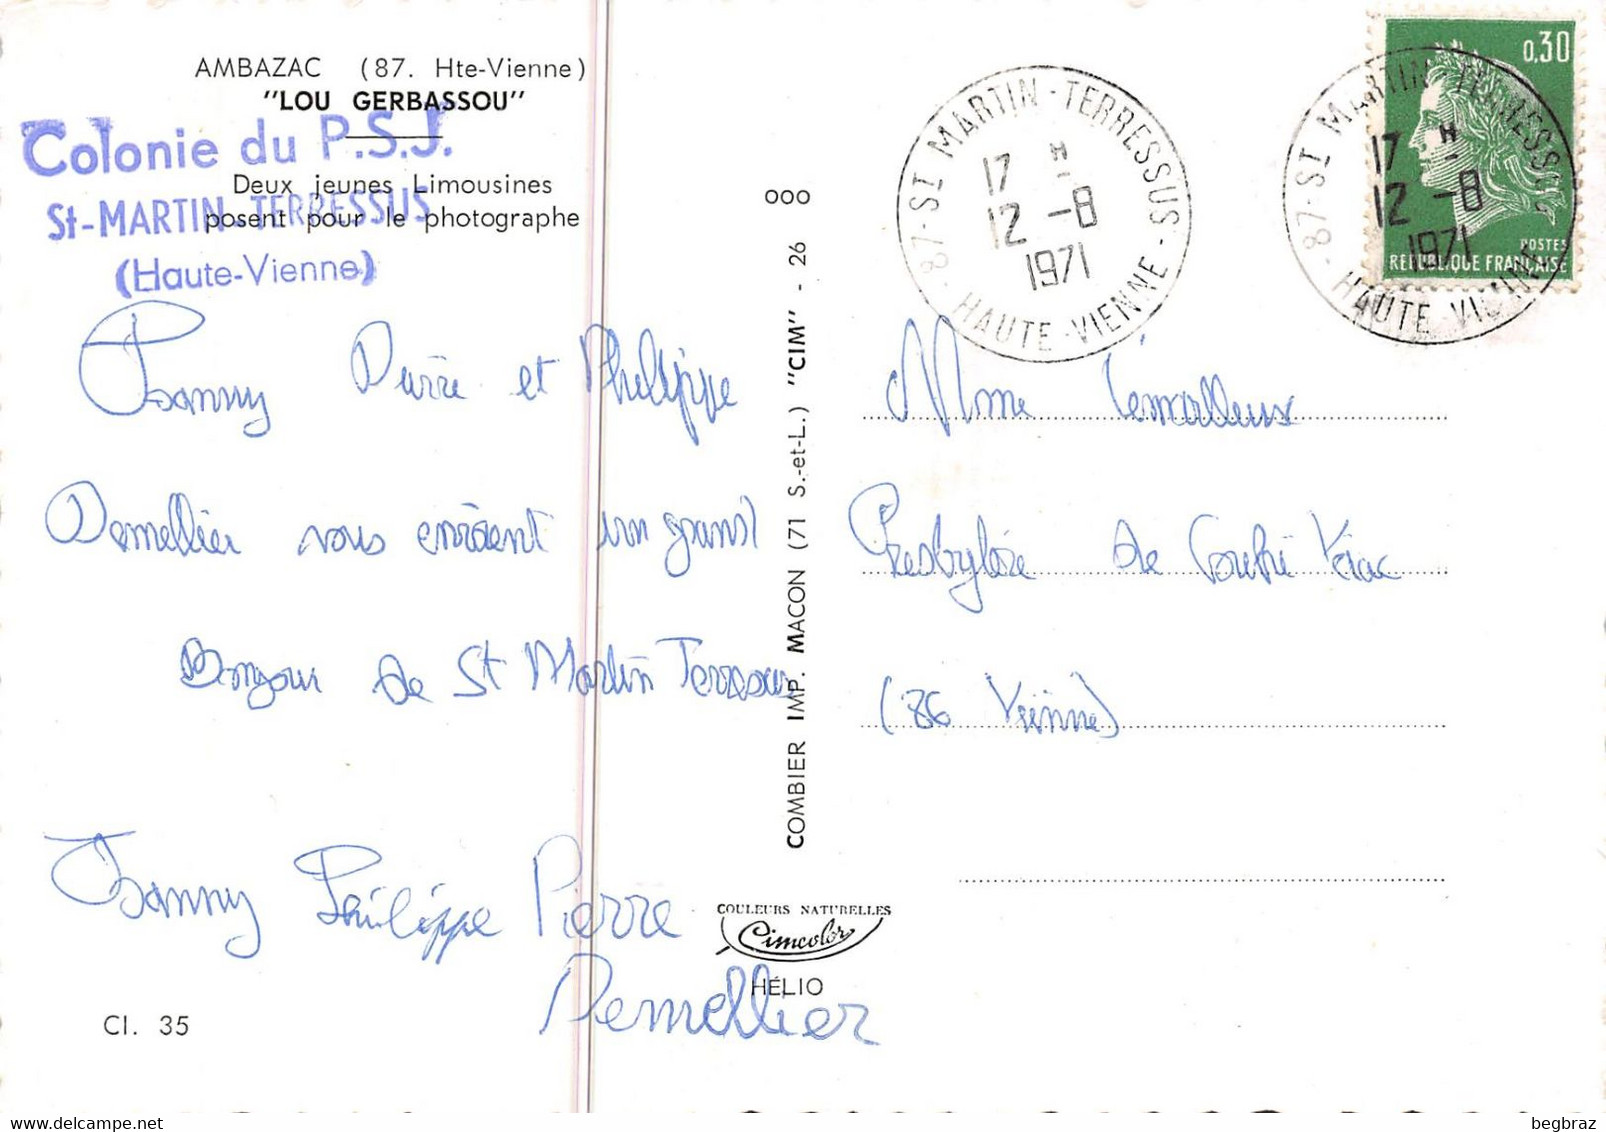 AMBAZAC (87. Hte-Vienne)
"LOU GERBASSOU"
Colonie du P.S.J.
Deux jeunes Limousines
St-MARTIN-TERRESSUS
posent pour le photographe
(Haute-Vienne)
Pierre et Philippe
Demellier vous envoient un grand
Bonjour de St Martin Terressus
Philippe Pierre
Demellier
Cl. 35
ooo
COMBIER IMP. MACON (71 S.-et-L.) "CIM" - 26
COULEURS NATURELLES
Cimcolor
HÉLIO
87-ST MARTIN-TERRESSUS-HAUTE-VIENNE-
17 H
12 -8
1971
0,30
POSTES
REPUBLIQUE FRANÇAISE
87-ST MARTIN-TERRESSUS-HAUTE-VIENNE
17 H
12 -8
1971
Mme
Presbytère de Couhé Vérac
(86 Vienne)
begbraz